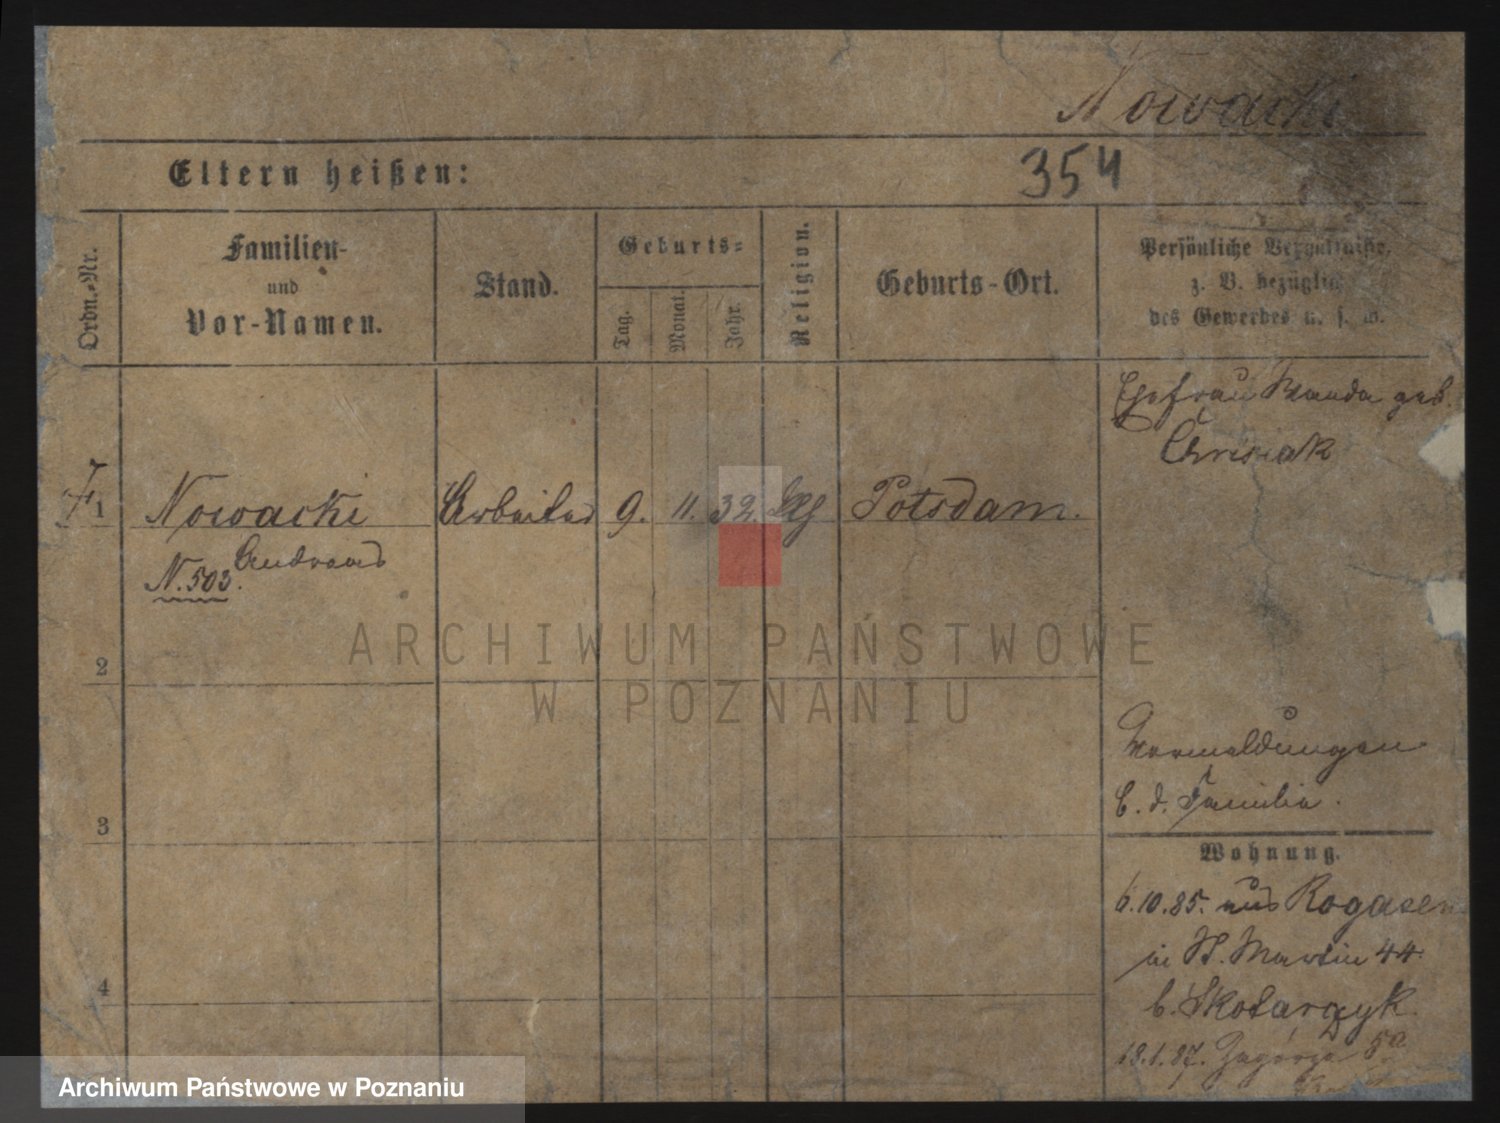 Nowacki
Eltern heißen:
354
Ordn.-Nr.
Familien-
und
Vor-Namen.
Stand.
Geburts-
Tag.
Monat.
Jahr.
Religion.
Geburts-Ort.
Persönliche Verhältnisse,
z. B. bezüglich
des Gewerbes u. s. w.
Ehefrau Wanda geb.
1
Nowacki
Arbeiter
9.
11.
32.
Potsdam.
Andreas
N. 503.
2
ARCHIWUM PAŃSTWOWE
W POZNANIU
3
b. d. Familie.
Wohnung.
6.10.85. aus Rogasen
in St. Martin 44.
4
b. Skotarzyk.
13.1.87. Zagórze
Archiwum Państwowe w Poznaniu